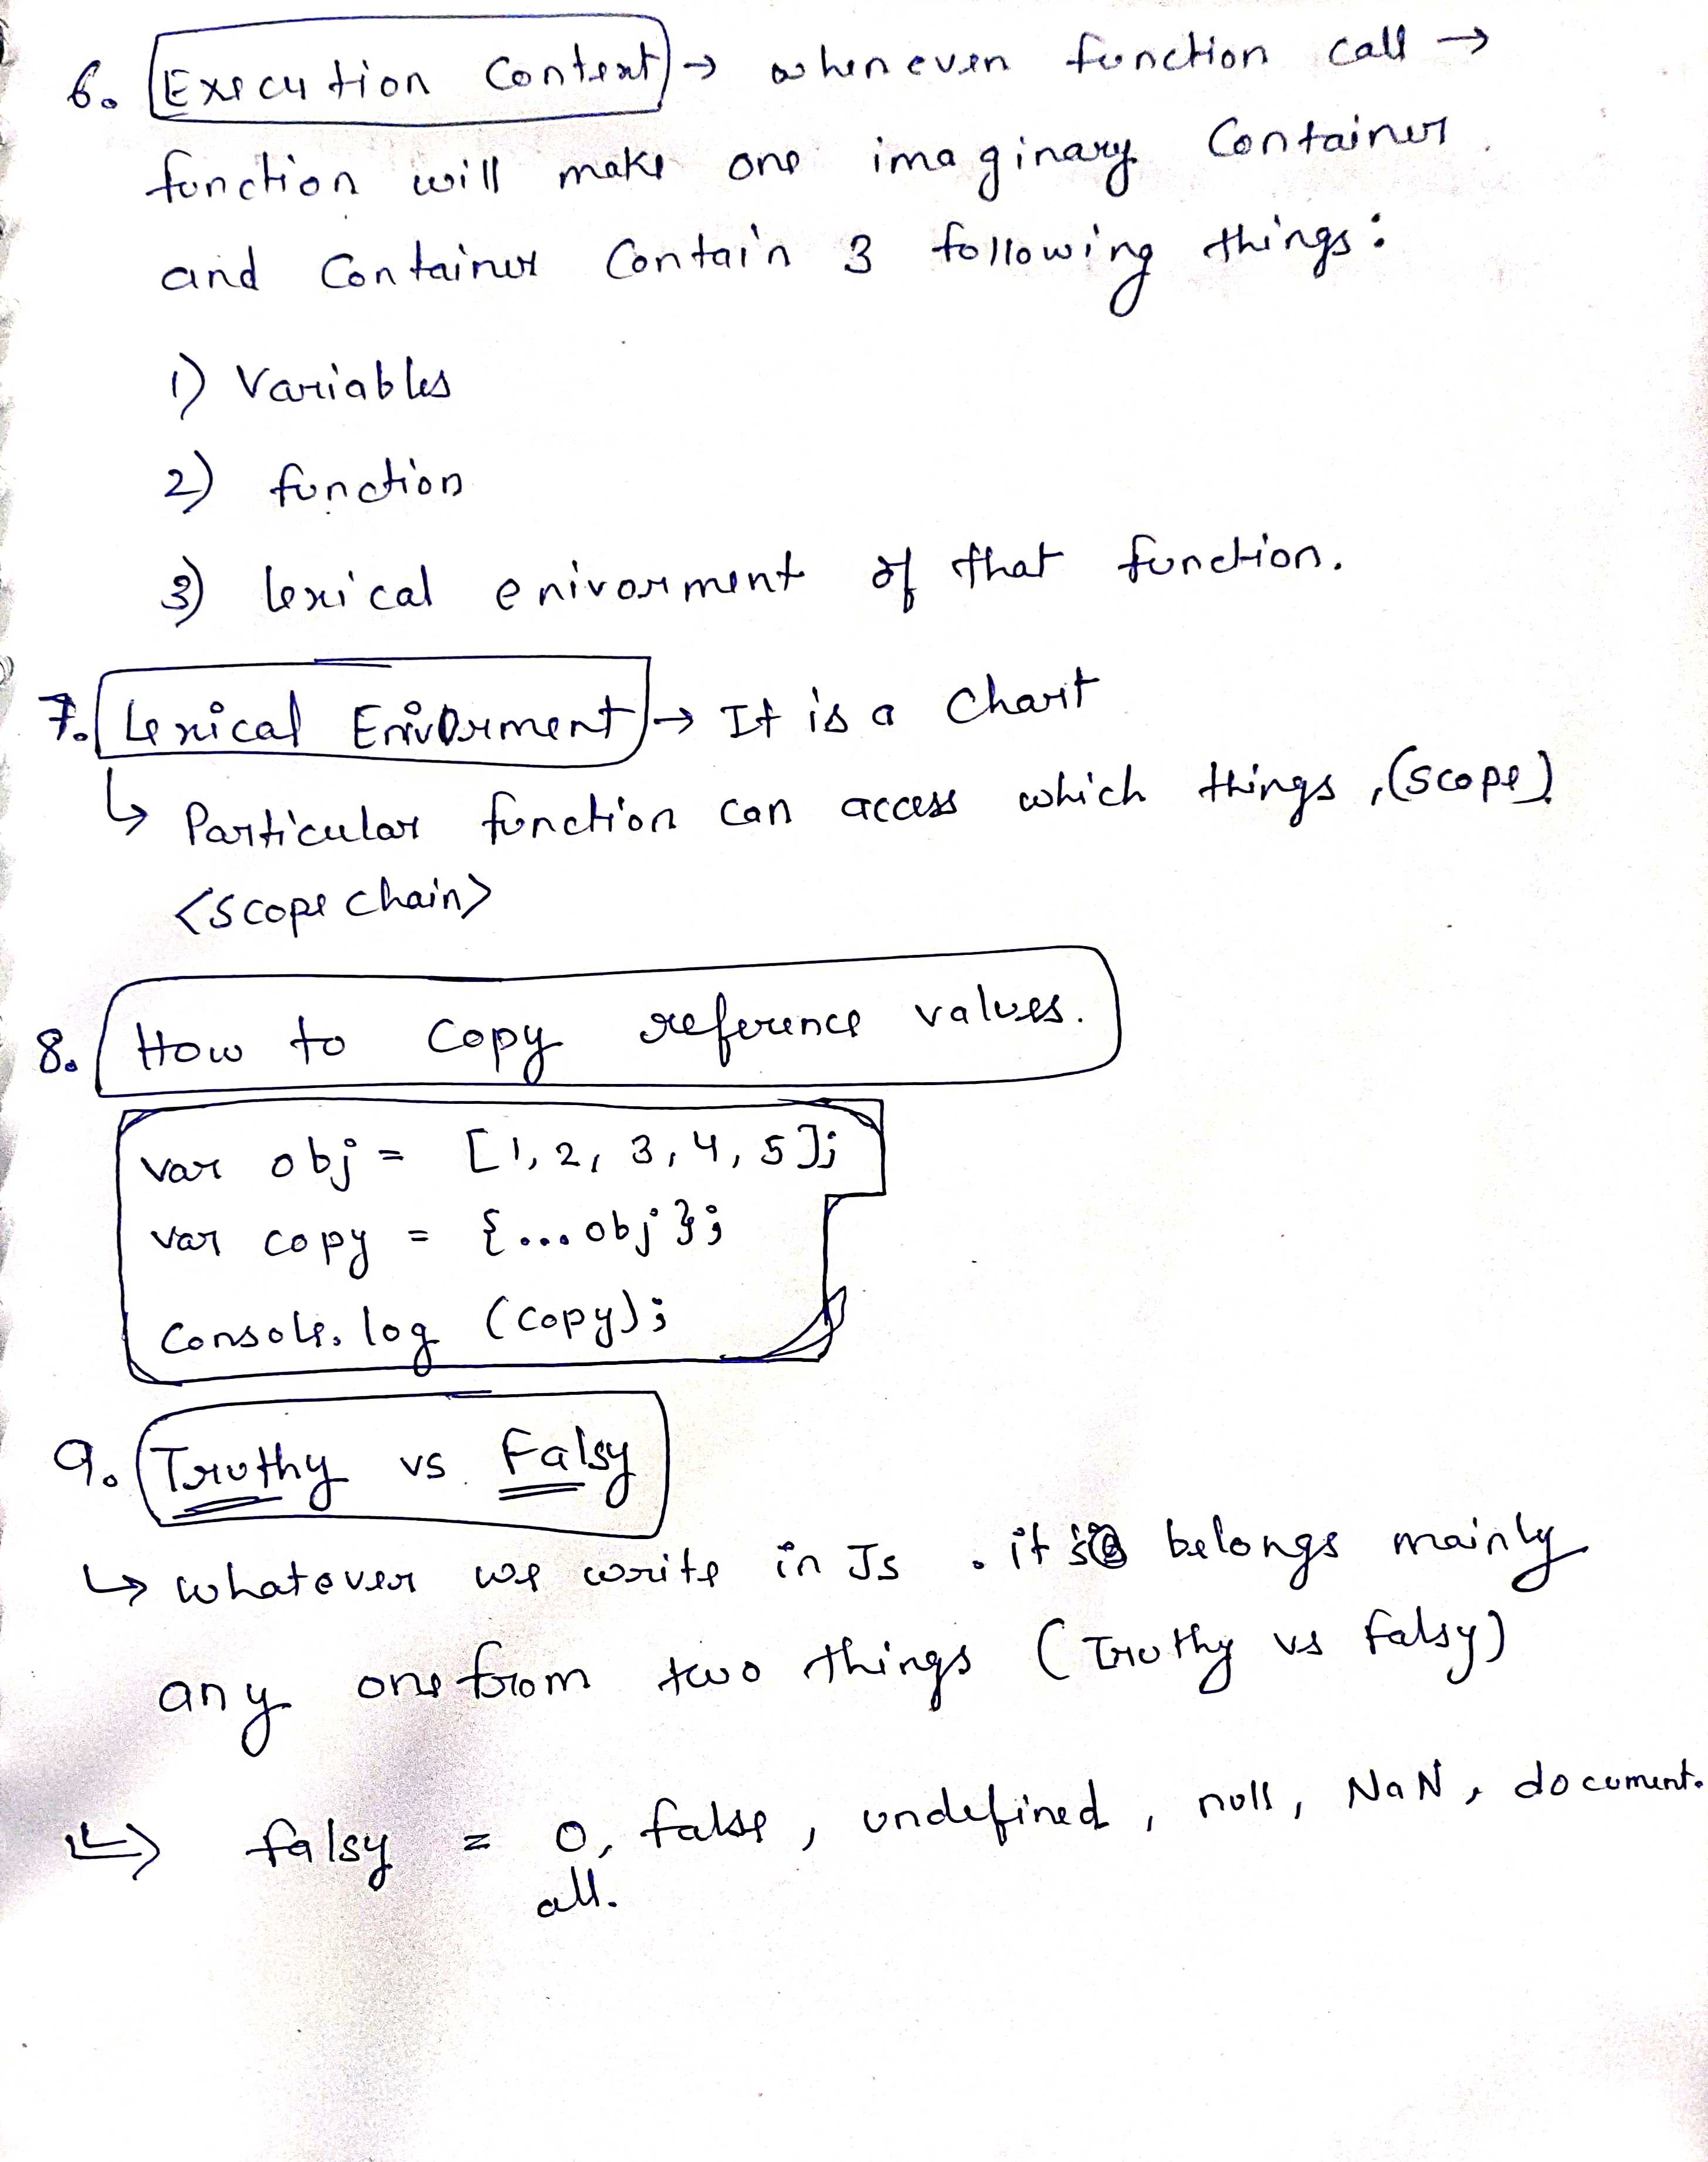 6. Execution Context → whenever function call →
function will make one imaginary Container.
and Container Contain 3 following things:
1) Variables
2) function
3) lexical enivorment of that function.
7. Lexical Enivorment → It is a Chart
↳ Particular function can access which things, (scope)
<scope chain>
8. How to Copy reference values.
var obj = [1, 2, 3, 4, 5];
var copy = {...obj};
Console.log (copy);
9. Truthy vs Falsy
↳ whatever we write in Js. it is belongs mainly
any one from two things (Truthy vs falsy)
↳ falsy = 0, false, undefined, null, NaN, document.
all.